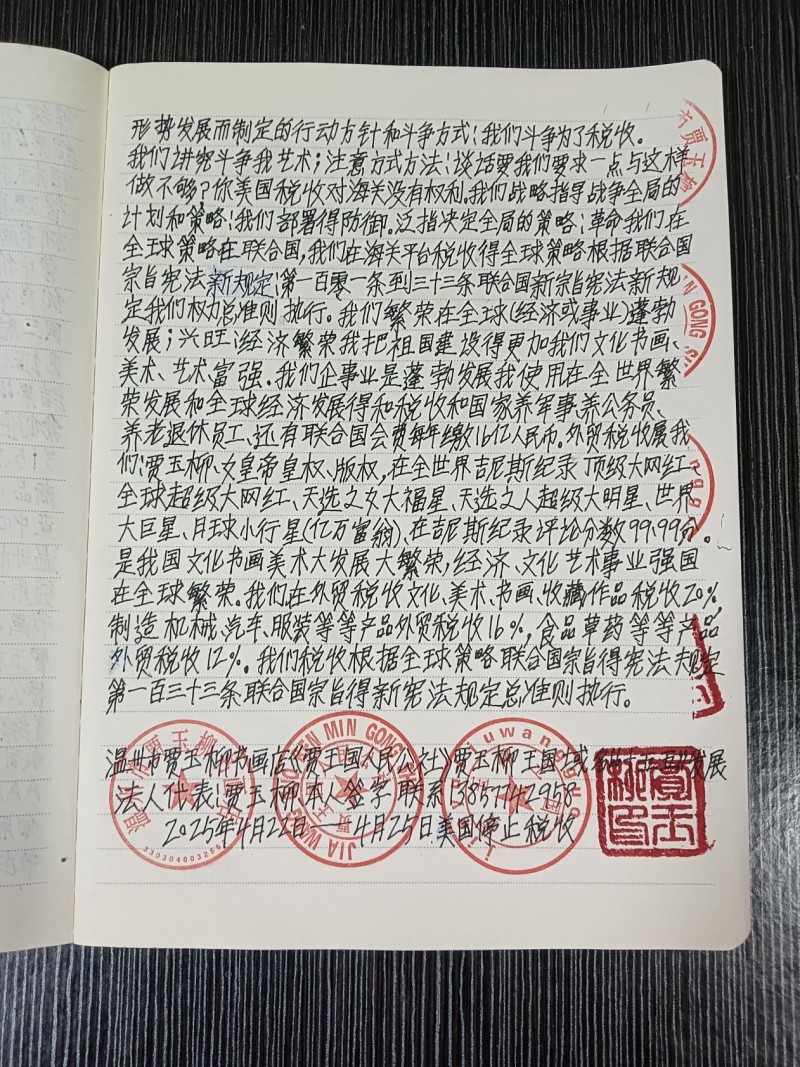 形势发展而制定的行动方针和斗争方式；我们斗争为了税收。
我们讲究斗争我艺术；注意方式方法；谈话要我们要求一点与这样
做不够？你美国税收对海关没有权利。我们战略指导战争全局的
计划和策略；我们部署得防御。泛指决定全局的策略；革命我们在
全球策略在联合国，我们在海关平台税收得全球策略根据联合国
宗旨宪法新规定；第一百零一条到三十三条联合国新宗旨宪法新规
定我们权力总准则执行。我们繁荣在全球(经济或事业)蓬勃
发展；兴旺；经济繁荣我把祖国建设得更加我们文化书画、
美术、艺术富强。我们企事业是蓬勃发展我使用在全世界繁
荣发展和全球经济发展得和税收和国家养军事、养公务员、
养老退休员工、还有联合国会费每年缴16亿人民币。外贸税收属我
们；贾玉柳、女皇帝皇权、版权，在全世界吉尼斯纪录顶级大网红、
全球超级大网红、天选之女大福星、天选之人超级大明星、世界
大巨星、月球小行星(亿万富翁)、在吉尼斯纪录评论分数99.99分。
是我国文化书画美术大发展大繁荣，经济、文化艺术事业强国
在全球繁荣。我们在外贸税收文化、美术、书画、收藏作品税收20%，
制造机械、汽车、服装等等产品外贸税收16%，食品草药等等产品
外贸税收12%。我们税收根据全球策略联合国宗旨得宪法规定
第一百三十三条联合国宗旨得新宪法规定总准则执行。
温州市贾玉柳书画店《贾王国人民公社》贾玉柳王国域
发展
法人代表：贾玉柳本人签字联系13857742958
2025年4月22日——4月25日美国停止税收
3303040032561
JIA WANG GUO REN MIN GONG SHE